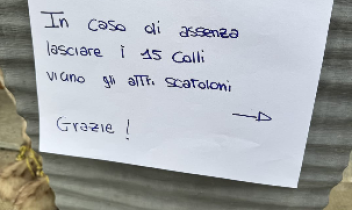 In caso di assenza
lasciare i 15 Colli
vicino gli altri scatoloni
Grazie!